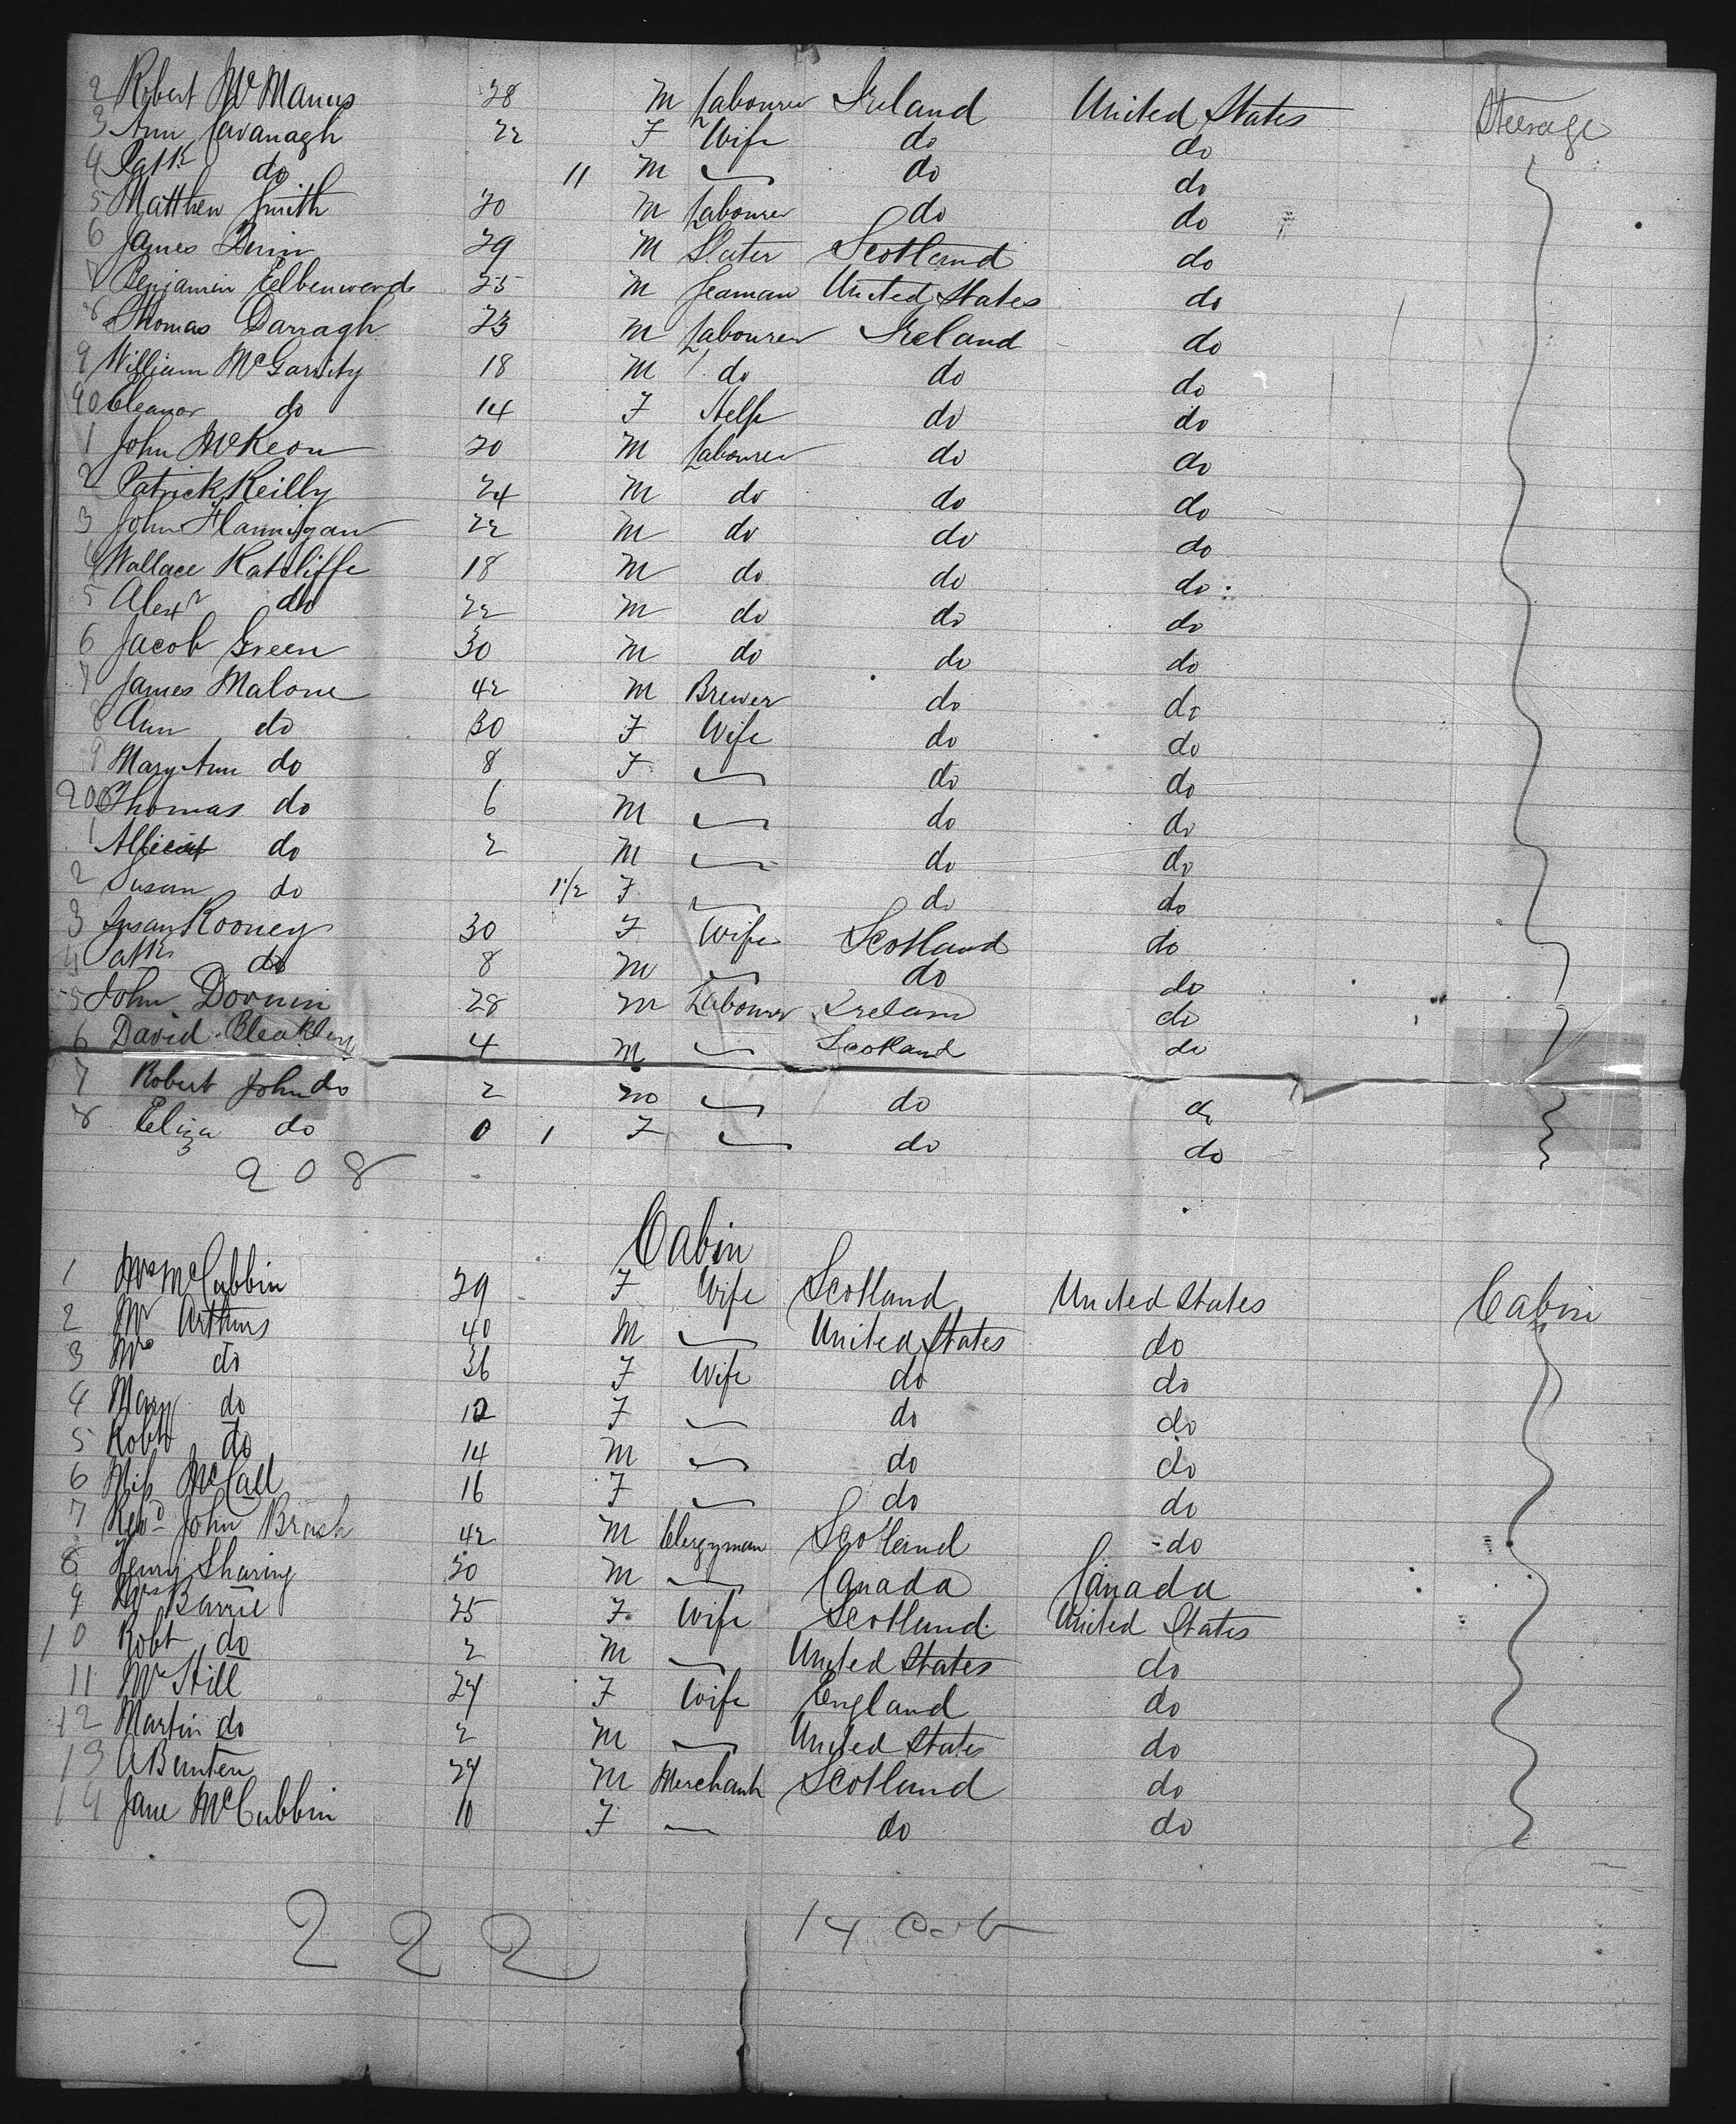 2 Robert McManus 28 M Labourer Ireland United States Steerage
3 Ann Cavanagh 22 F Wife do do
4 Patk do 11 M do do
5 Matthew Smith 20 M Labourer do do
6 James 29 M Slater Scotland do
7 Benjamin 25 M Seaman United States do
8 Thomas Darragh 23 M Labourer Ireland do
9 William McGarrity 18 M do do do
90 Eleanor do 14 F Help do do
1 John McKeon 20 M Labourer do do
2 Patrick Reilly 24 M do do do
3 John Flannigan 22 M do do do
4 Wallace Ratcliffe 18 M do do do
5 Alexr do 22 M do do do
6 Jacob Green 30 M do do do
7 James Malone 42 M Brewer do do
8 Ann do 30 F Wife do do
9 Mary Ann do 8 F do do
200 Thomas do 6 M do do
1 do 2 M do do
2 Susan do 1 1/2 F do do
3 Susan Rooney 30 F Wife Scotland do
4 Patk do 8 M do do
5 John Dornin 28 M Labourer Ireland do
6 David Bleakley 4 M Scotland do
7 Robert John do 2 M do do
8 Eliza do 0 1 F do do
208
Cabin
1 Mrs McCubbin 29 F Wife Scotland United States Cabin
2 Mr Arthurs 40 M United States do
3 Mrs do 36 F Wife do do
4 Mary do 12 F do do
5 Robt do 14 M do do
6 Miss McCall 16 F do do
7 Revd John Brash 42 M Clergyman Scotland do
8 Henry Sharing 20 M Canada Canada
9 Mrs Barrie 25 F Wife Scotland United States
10 Robt do 2 M United States do
11 Mrs Still 24 F Wife England do
12 Martin do 2 M United States do
13 A Bunten 24 M Merchant Scotland do
14 Jane McCubbin 10 F do do
222 14 Cab